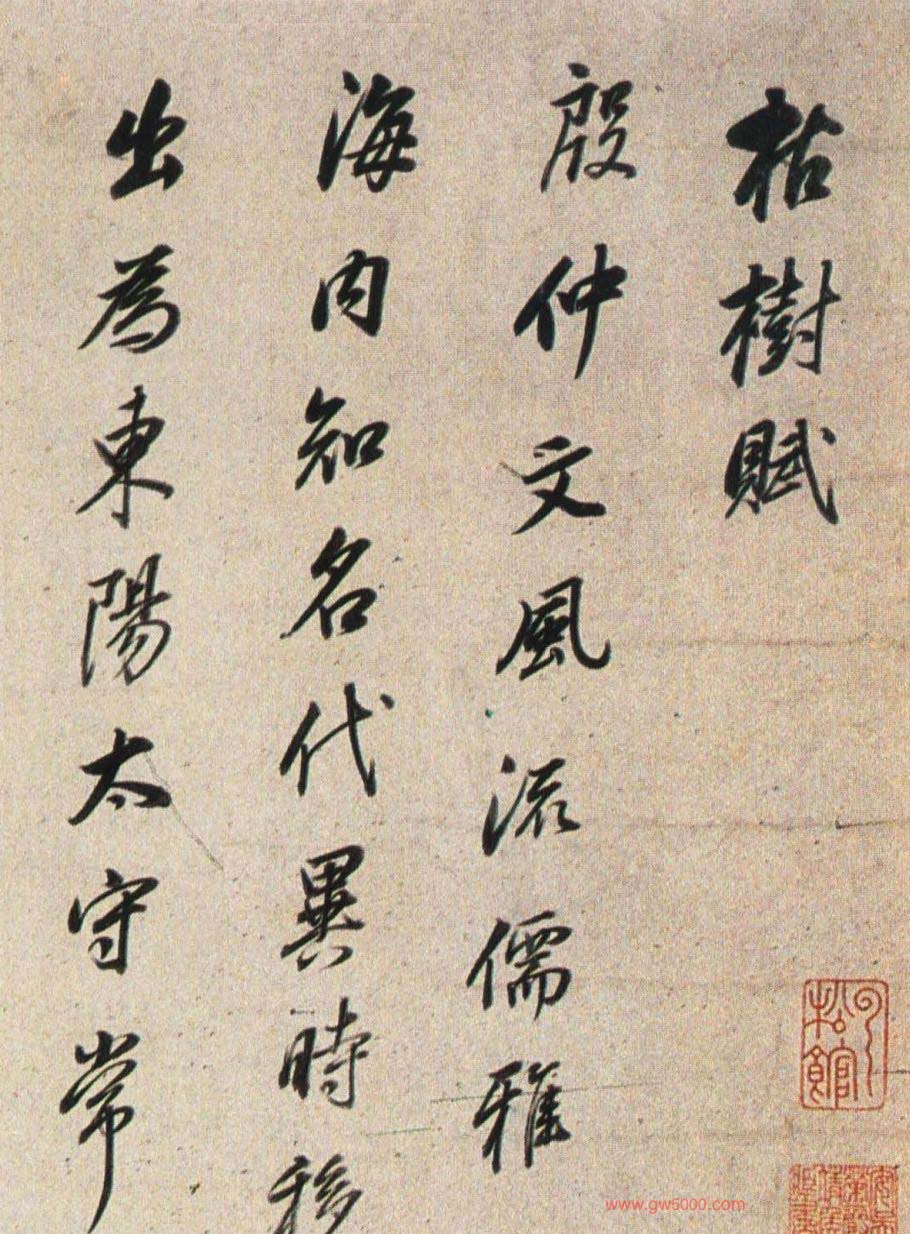 枯樹賦
殷仲文風流儒雅
海内知名代異時移
出為東陽太守常
www.gw5000.com